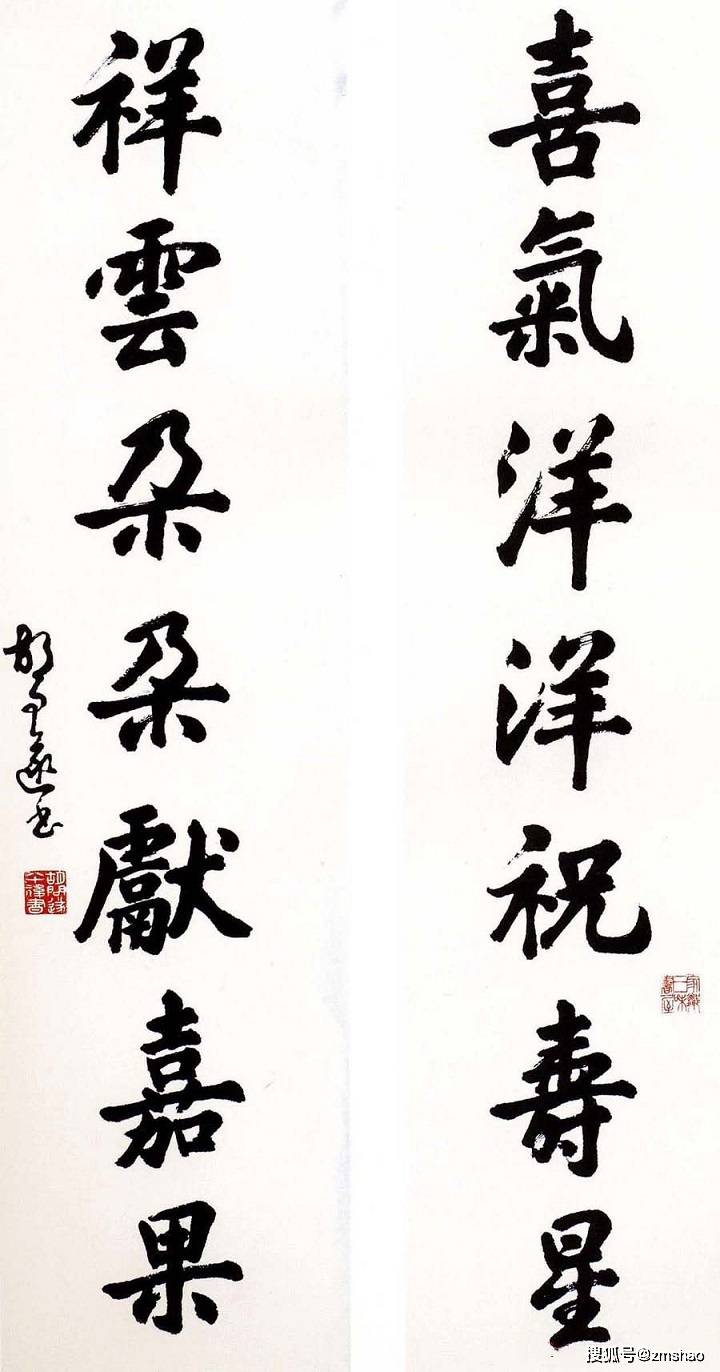 喜氣洋洋祝壽星
祥雲朶朶獻嘉果
胡問遂書
搜狐号@zmshao